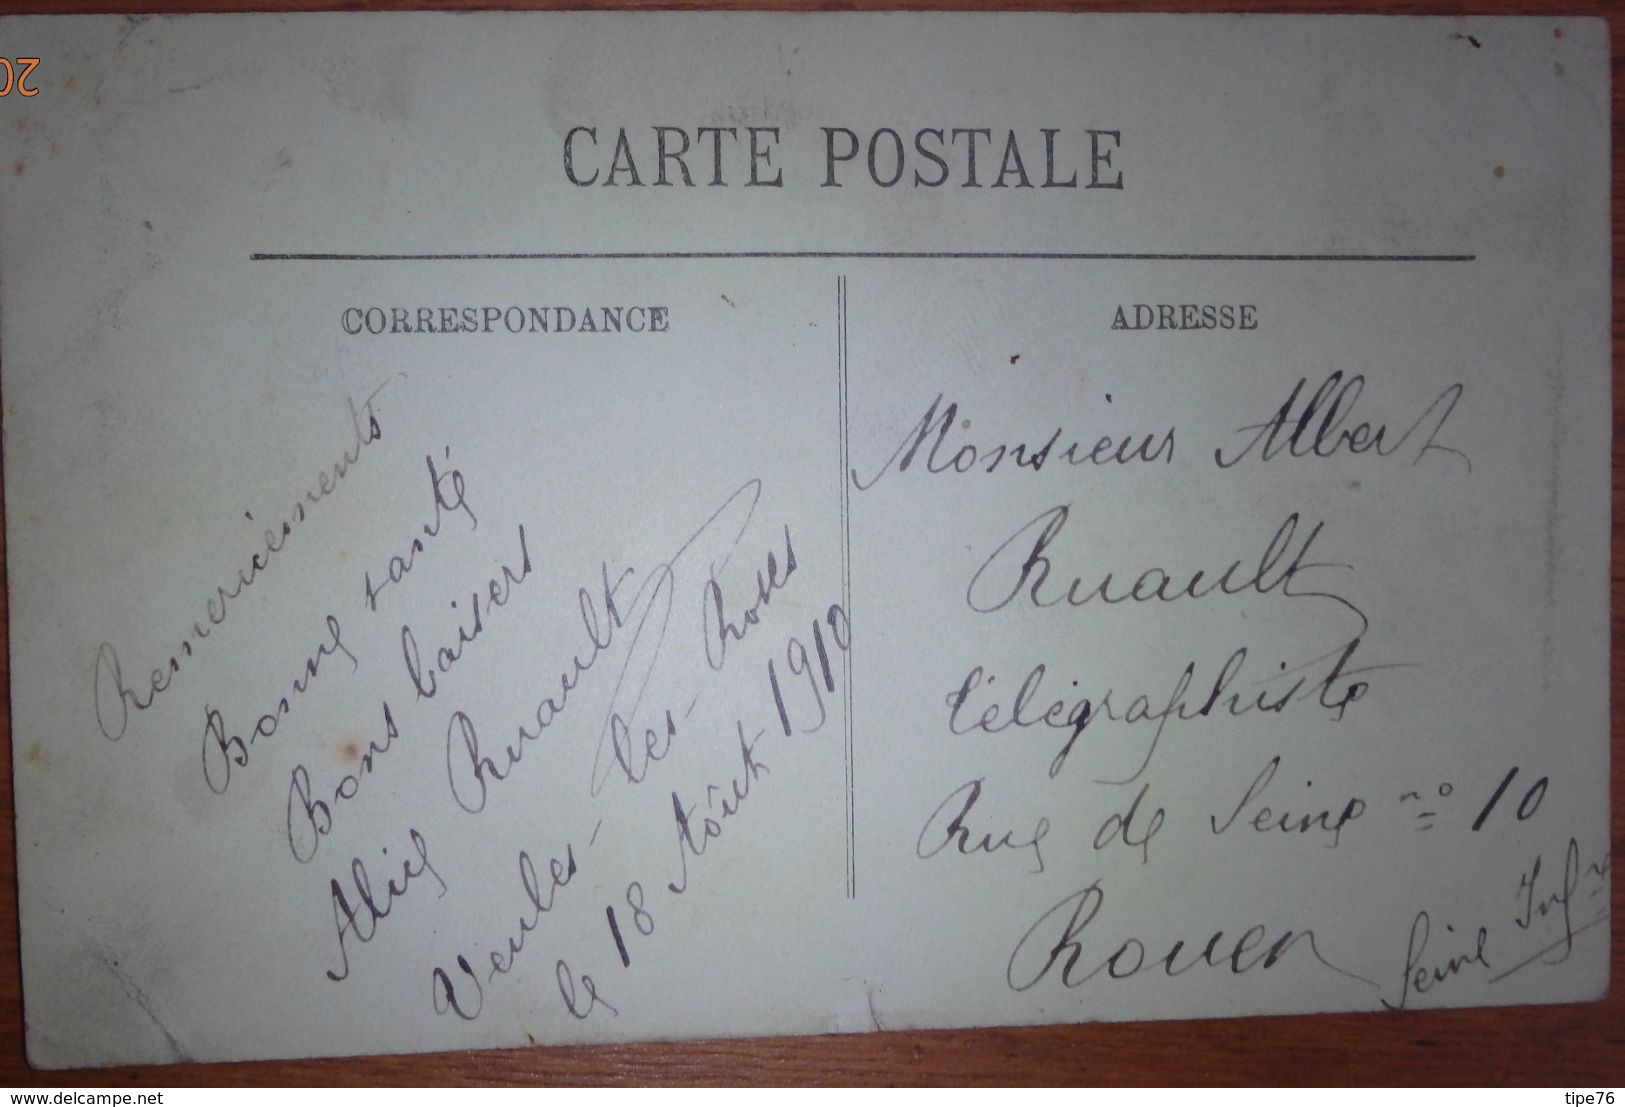 CARTE POSTALE
CORRESPONDANCE
Remerciements
Bonne santé
Bons baisers
Alice Ruault
Veules-les-Roses
le 18 Aôut 1910
ADRESSE
Monsieur Albert
Ruault
télégraphiste
Rue de Seine nº 10
Rouen
Seine Infre
www.delcampe.net
tipe76